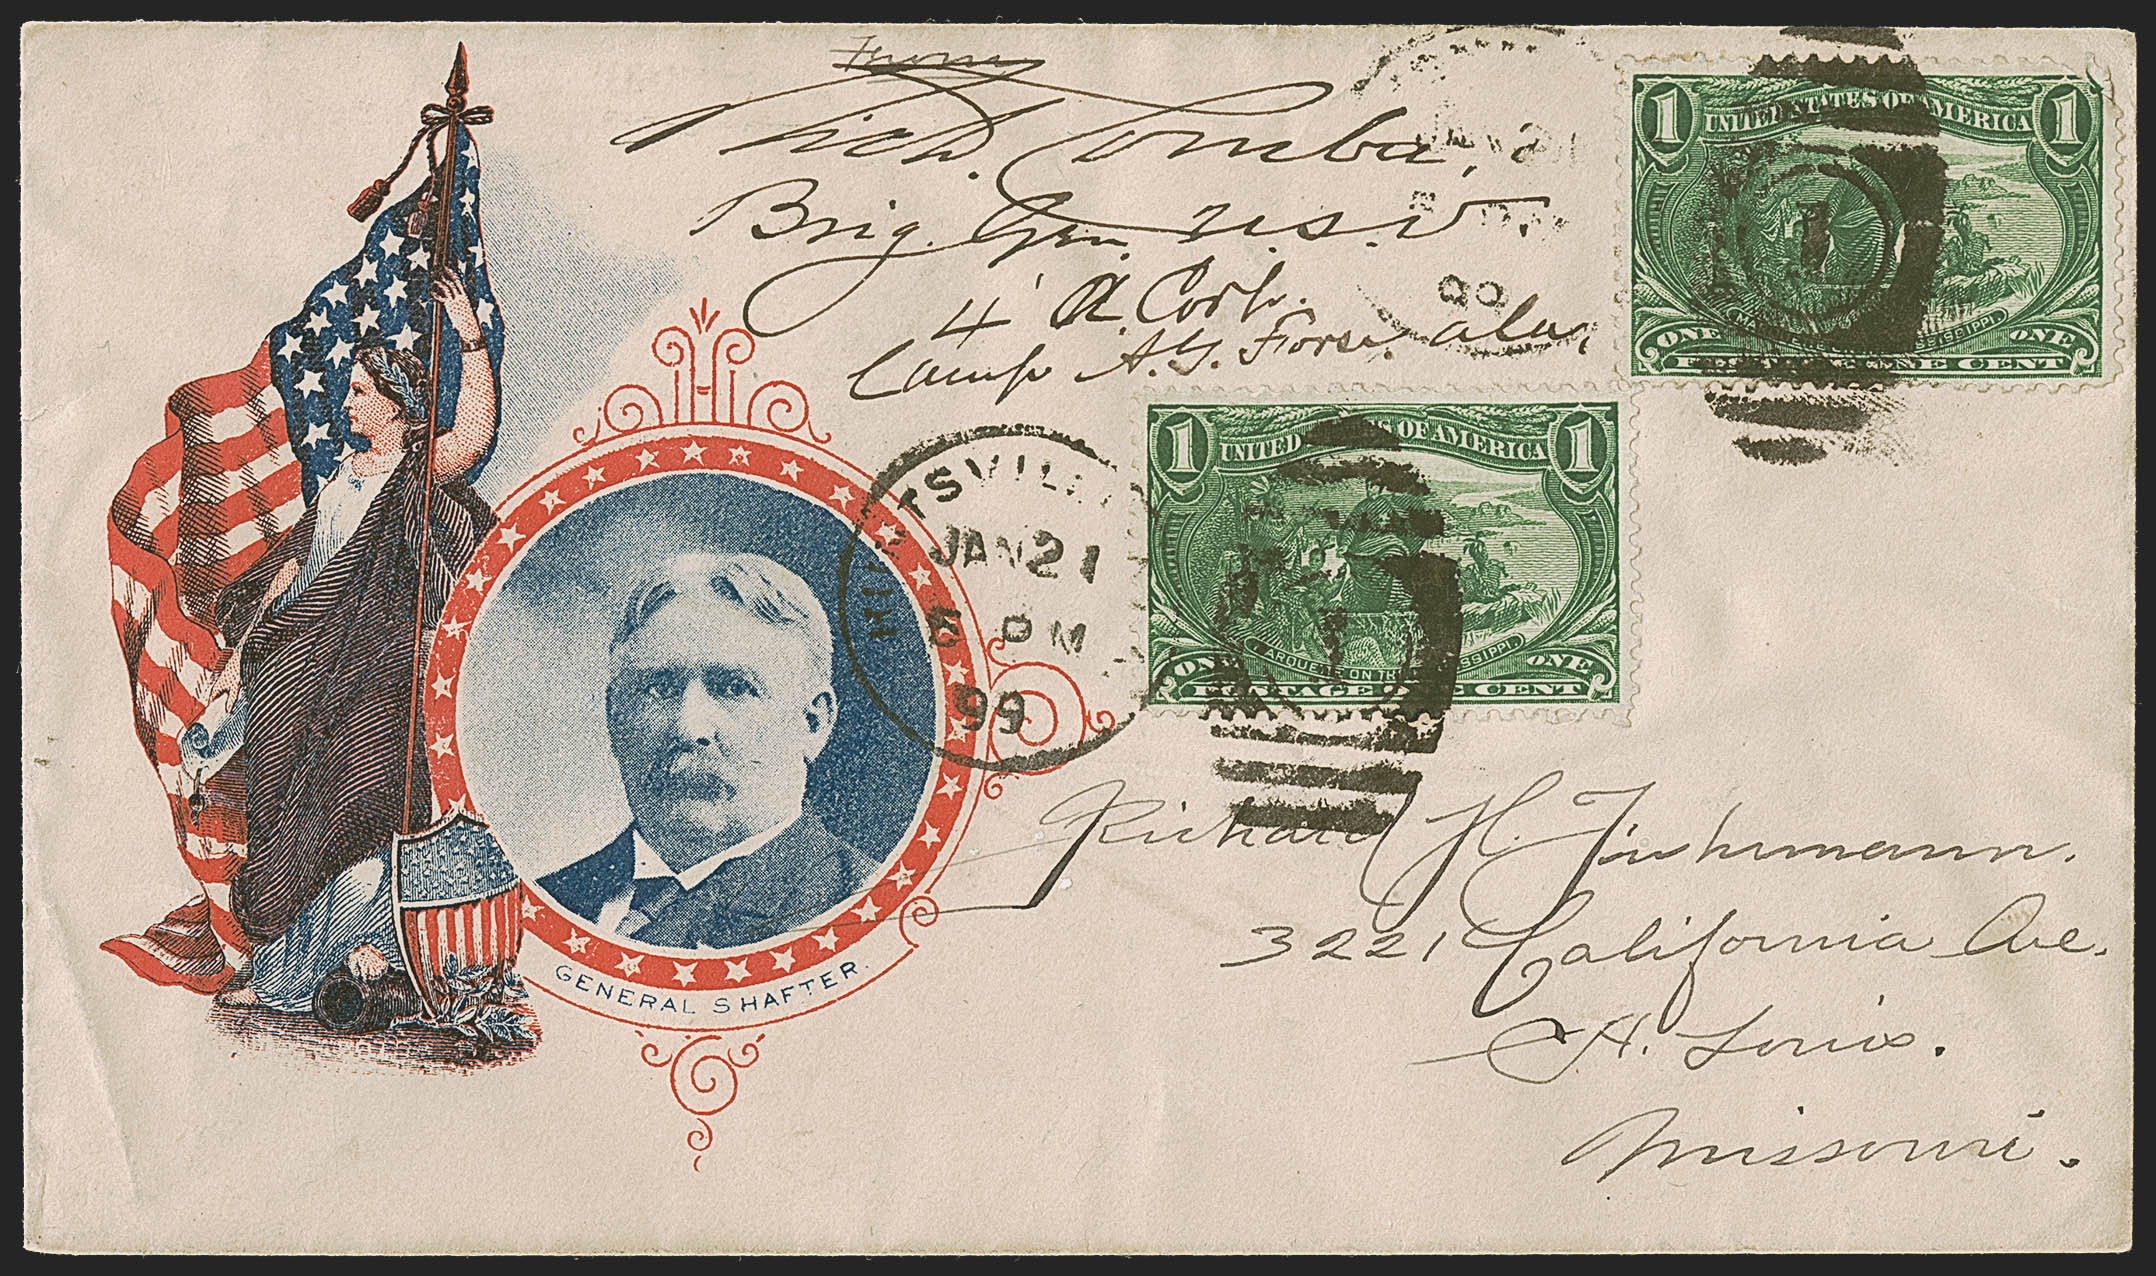 From
Rich. Comba,
Brig. Gen. U.S.V.
4' A. Corps.
Camp A.G. Forse. Ala,
JAN 21
99
1 UNITED STATES OF AMERICA 1
MARQUETTE ON THE MISSISSIPPI.
ONE ONE
POSTAGE ONE CENT
1
HUNTSVILLE
JAN 21
6 PM
99
1 UNITED STATES OF AMERICA 1
MARQUETTE ON THE MISSISSIPPI.
ONE ONE
POSTAGE ONE CENT
1
GENERAL SHAFTER.
Richard H. Fishmann.
3221 California Ave.
St. Louis.
Missouri.